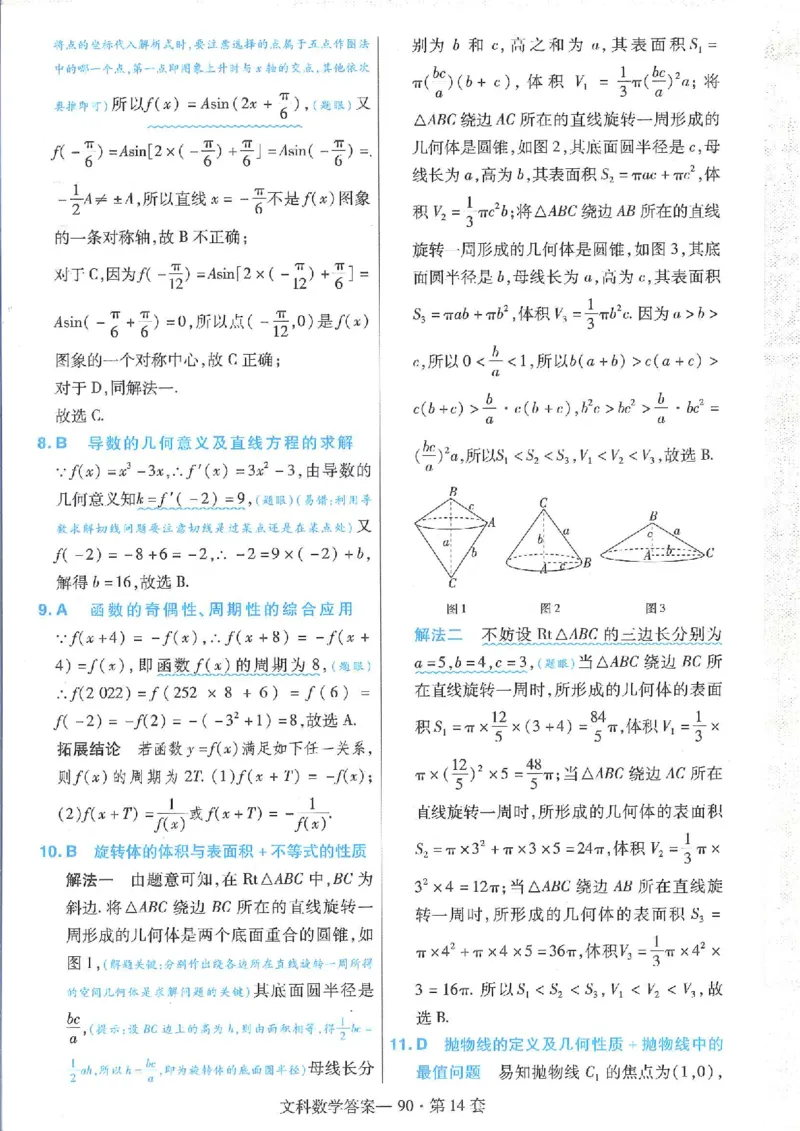 将点的坐标代入解析式时,要注意选择的点属于五点作图法
中的哪一个点,第一点即图象上升时与x轴的交点,其他依次
类推即可)所以f(x)=Asin(2x+π/6),(题眼)又
f(-π/6)=Asin[2×(-π/6)+π/6]=Asin(-π/6)=
-1/2A≠±A,所以直线x=-π/6不是f(x)图象
的一条对称轴,故B不正确;
对于C,因为f(-π/12)=Asin[2×(-π/12)+π/6]=
Asin(-π/6+π/6)=0,所以点(-π/12,0)是f(x)
图象的一个对称中心,故C正确;
对于D,同解法一.
故选C.
8.B 导数的几何意义及直线方程的求解
∵f(x)=x³-3x,∴f′(x)=3x²-3,由导数的
几何意义知k=f′(-2)=9,(题眼)(易错:利用导
数求解切线问题要注意切线是过某点还是在某点处)又
f(-2)=-8+6=-2,∴-2=9×(-2)+b,
解得b=16,故选B.
9.A 函数的奇偶性、周期性的综合应用
∵f(x+4)=-f(x),∴f(x+8)=-f(x+
4)=f(x),即函数f(x)的周期为8,(题眼)
∴f(2 022)=f(252×8+6)=f(6)=
f(-2)=-f(2)=-(-3²+1)=8,故选A.
拓展结论 若函数y=f(x)满足如下任一关系,
则f(x)的周期为2T.(1)f(x+T)=-f(x);
(2)f(x+T)=1/f(x)或f(x+T)=-1/f(x).
10.B 旋转体的体积与表面积+不等式的性质
解法一 由题意可知,在Rt△ABC中,BC为
斜边.将△ABC绕边BC所在的直线旋转一
周形成的几何体是两个底面重合的圆锥,如
图1,(解题关键:分别作出绕各边所在直线旋转一周所得
的空间几何体是求解问题的关键)其底面圆半径是
bc/a,(提示:设BC边上的高为h,则由面积相等,得1/2bc=
1/2ah,所以h=bc/a,即为旋转体的底面圆半径)母线长分
别为b和c,高之和为a,其表面积S₁=
π(bc/a)(b+c),体积V₁=1/3π(bc/a)²a;将
△ABC绕边AC所在的直线旋转一周形成的
几何体是圆锥,如图2,其底面圆半径是c,母
线长为a,高为b,其表面积S₂=πac+πc²,体
积V₂=1/3πc²b;将△ABC绕边AB所在的直线
旋转一周形成的几何体是圆锥,如图3,其底
面圆半径是b,母线长为a,高为c,其表面积
S₃=πab+πb²,体积V₃=1/3πb²c.因为a>b>
c,所以0<b/a<1,所以b(a+b)>c(a+c)>
c(b+c)>b/a·c(b+c),b²c>bc²>b/a·bc²=
(bc/a)²a,所以S₁<S₂<S₃,V₁<V₂<V₃,故选B.
B c A a b C
C b a A c B
B c a A b C
图1 图2 图3
解法二 不妨设Rt△ABC的三边长分别为
a=5,b=4,c=3,(题眼)当△ABC绕边BC所
在直线旋转一周时,所形成的几何体的表面
积S₁=π×12/5×(3+4)=84/5π,体积V₁=1/3×
π×(12/5)²×5=48/5π;当△ABC绕边AC所在
直线旋转一周时,所形成的几何体的表面积
S₂=π×3²+π×3×5=24π,体积V₂=1/3π×
3²×4=12π;当△ABC绕边AB所在直线旋
转一周时,所形成的几何体的表面积S₃=
π×4²+π×4×5=36π,体积V₃=1/3π×4²×
3=16π.所以S₁<S₂<S₃,V₁<V₂<V₃,故
选B.
11.D 抛物线的定义及几何性质+抛物线中的
最值问题 易知抛物线C₁的焦点为(1,0),
文科数学答案—90·第14套